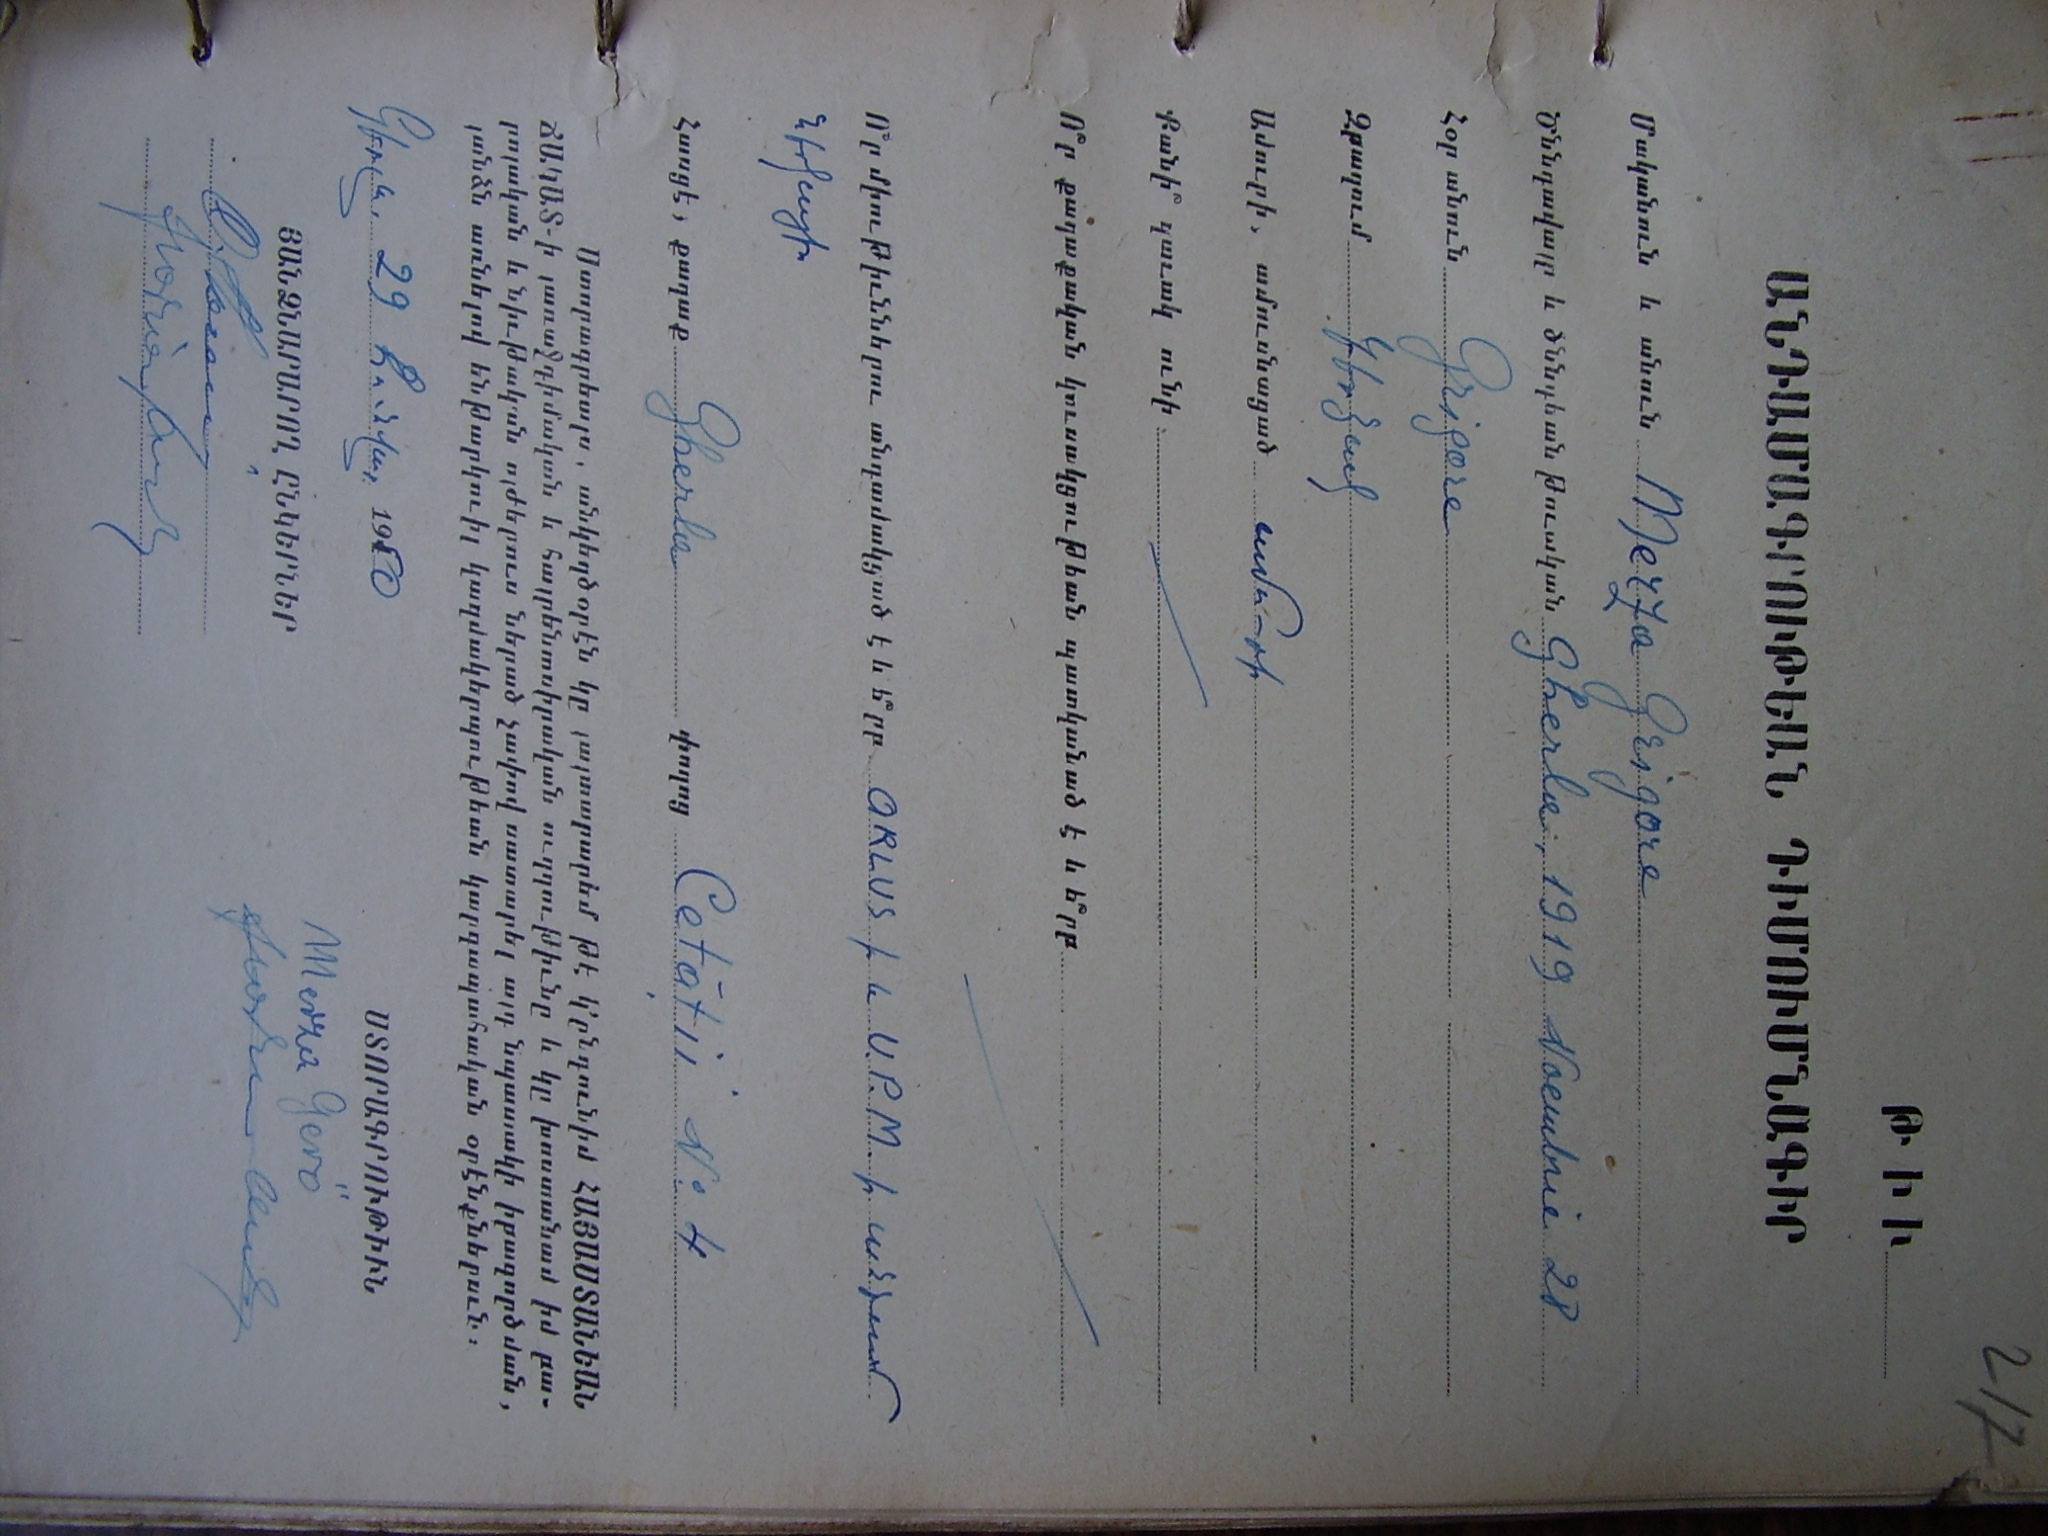 217
ԹԻՒ
ԱՆԴԱՄԱԳՐՈՒԹԵԱՆ ԴԻՄՈՒՄՆԱԳԻՐ
Մականուն և անուն Merza Grigore
Ծննդավայր և ծննդեան թուական Gherla, 1919 Noembrie 28
Հօր անուն Grigore
Զբաղում
Ամուրի, ամուսնացած ամուրի
Քանի՞ զաւակ ունի
Ո՞ր քաղաքական կուսակցութեան պատկանած է և ե՞րբ
Ո՞ր միութիւններու անդամակցած է և ե՞րբ ARLUS ի և U.P.M. ի անդամ
Հասցէ, քաղաք Gherla փողոց Cetății No 4
Ստորագրեալս, անկեղծօրէն կը յայտարարեմ թէ կ՚ընդունիմ ՀԱՅԱՍՏԱՆԵԱՆ
ՃԱԿԱՏ-ի յառաջդիմական և հայրենասիրական ուղղութիւնը և կը խոստանամ իմ բա-
րոյական և նիւթական ոյժերուս ներած չափով սատարել այդ նպատակի իրագործման,
յանձն առնելով ենթարկուիլ կազմակերպութեան կարգապահական օրէնքներուն։
Գեռլա, 29 Յունվար 1950
ՍՏՈՐԱԳՐՈՒԹԻՒՆ
Merza Gerö
ՅԱՆՁՆԱՐԱՐՈՂ ԸՆԿԵՐՆԵՐ